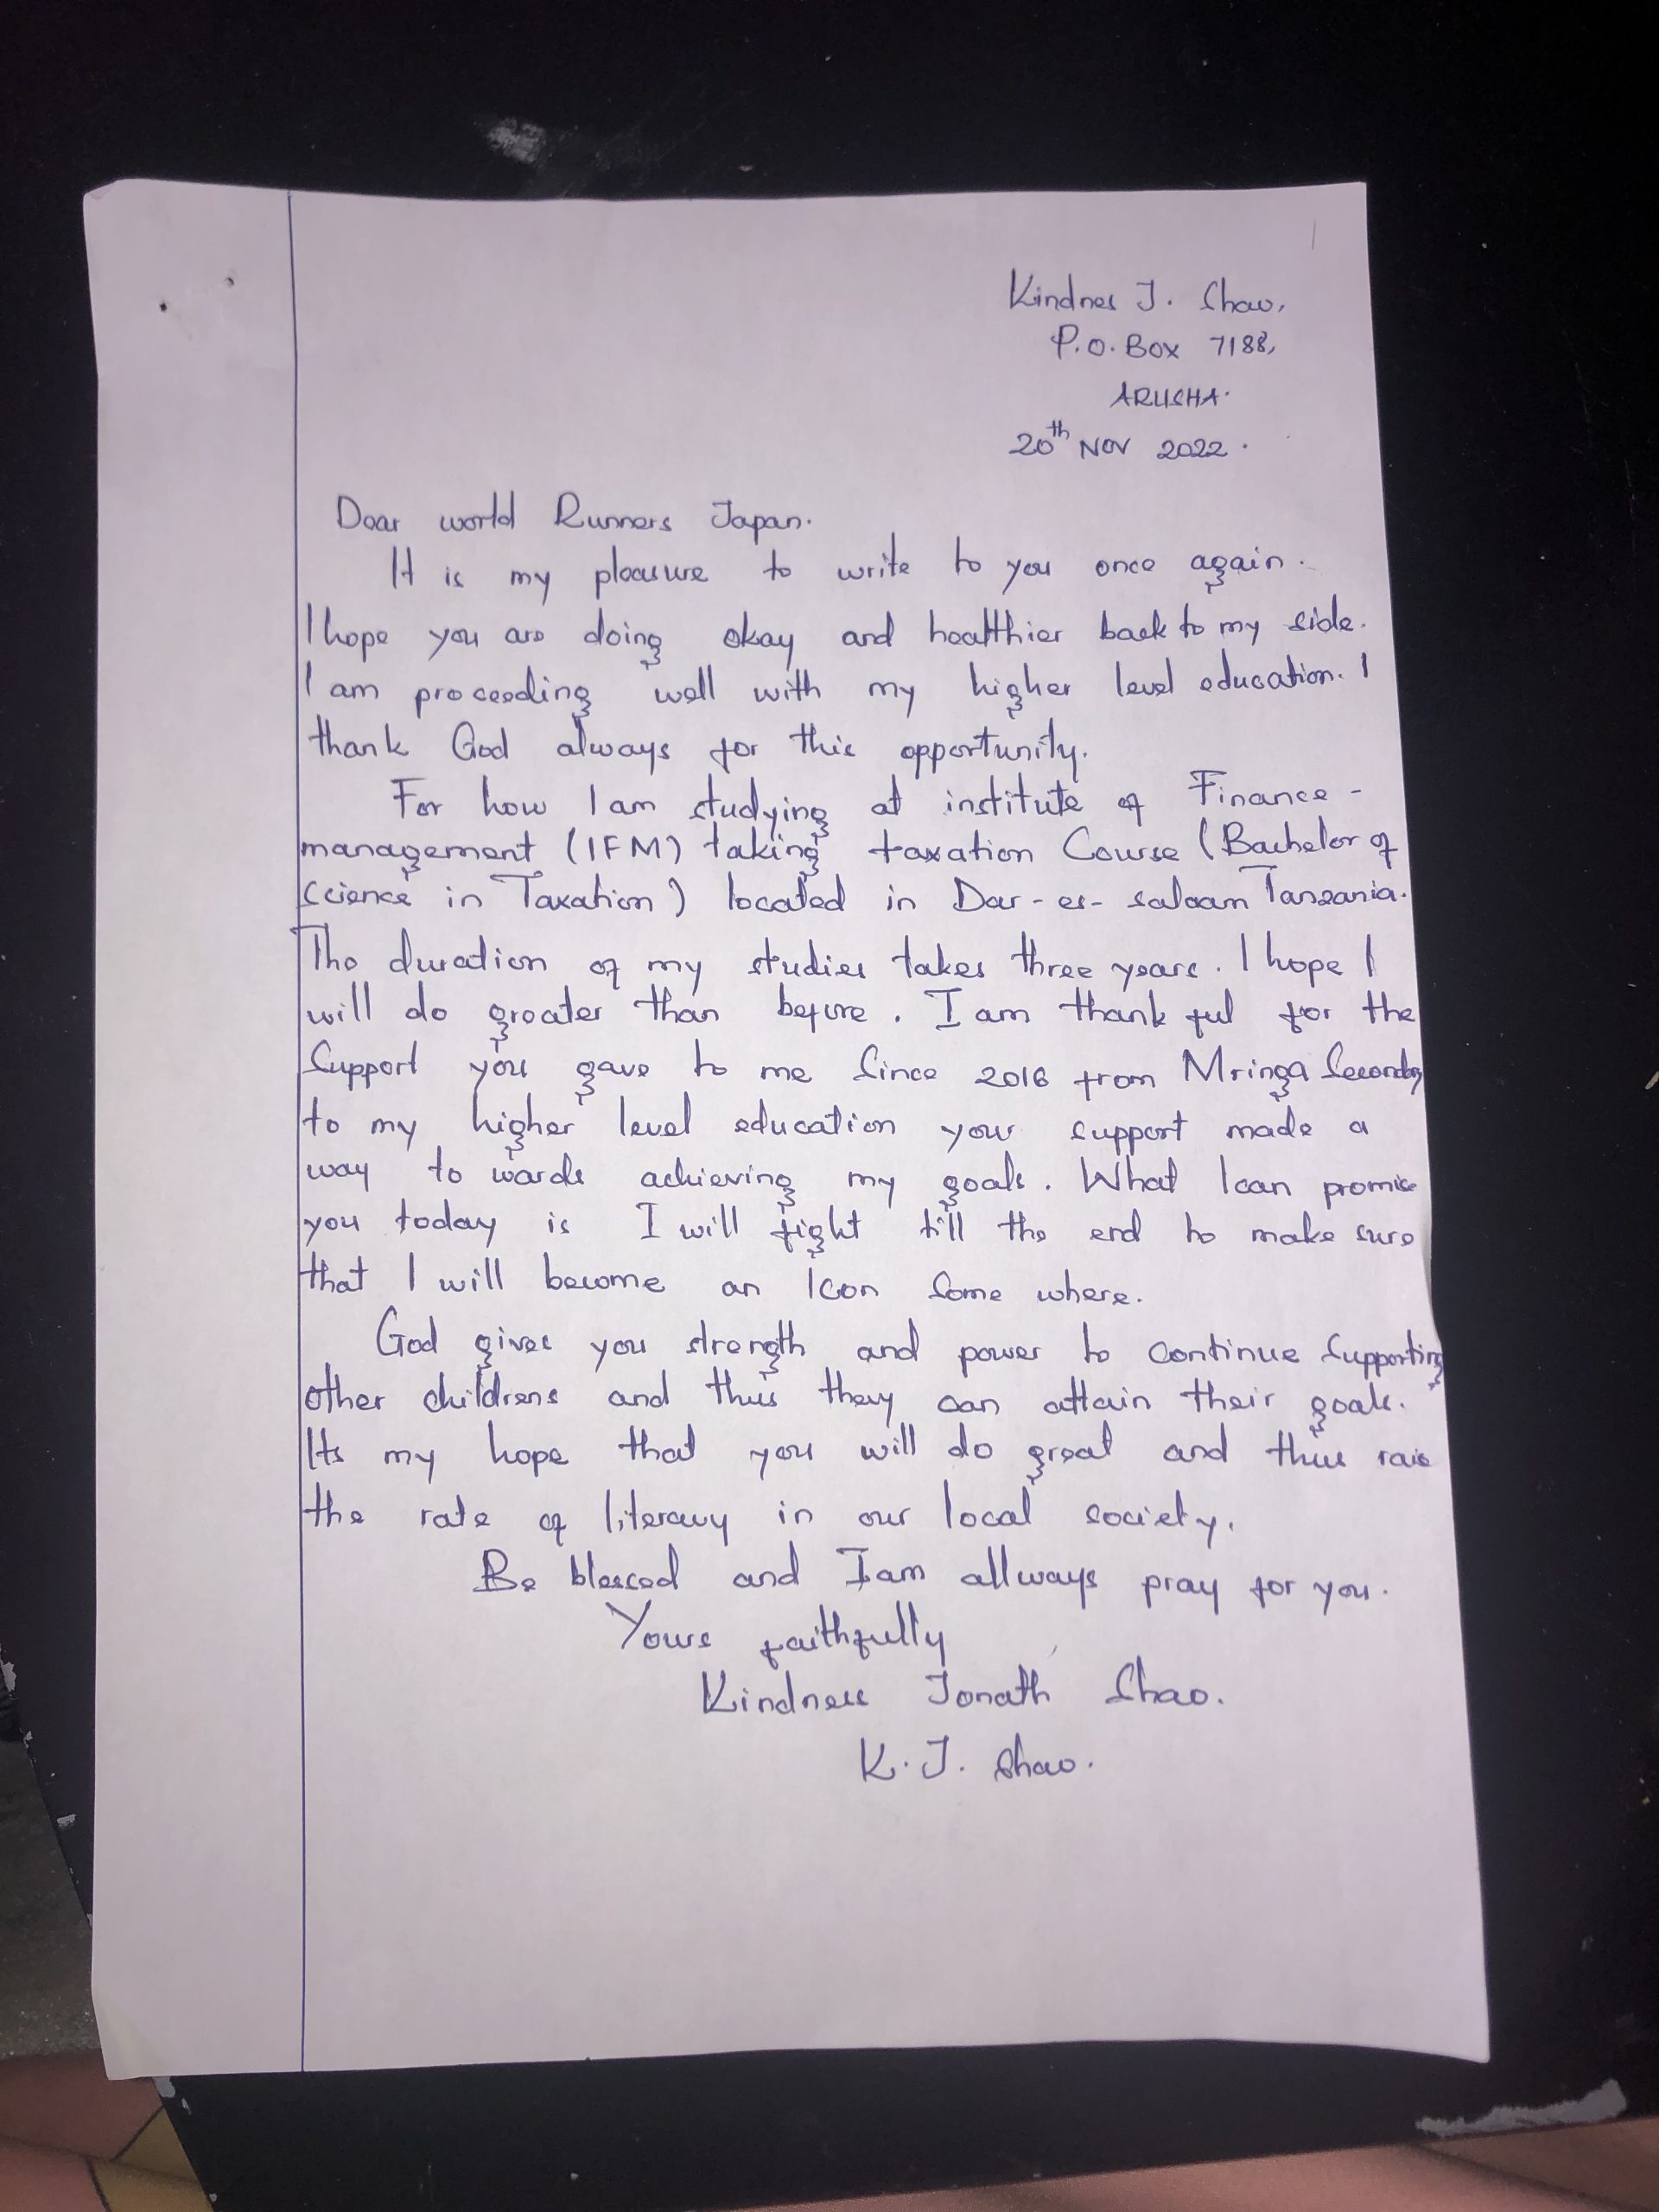 Kindnes J. Shao,
P.O. Box 7188,
ARUSHA.
20th NOV 2022.
Dear world Runners Japan.
It is my pleasure to write to you once again.
I hope you are doing okay and healthier back to my side.
I am proceeding well with my higher level education. I
thank God always for this opportunity.
For how I am studying at institute of Finance -
management (IFM) taking taxation Course (Bachelor of
Science in Taxation) located in Dar-es-salaam Tanzania.
The duration of my studies takes three years. I hope I
will do greater than before. I am thank ful for the
Support you gave to me Since 2016 from Mringa Secondary
to my higher level education your support made a
way to wards achieving my goals. What I can promise
you today is I will fight till the end to make sure
that I will become an Icon Some where.
God gives you strength and power to continue Supporting
other childrens and thus they can attain their goals.
Its my hope that you will do great and thus raise
the rate of literacy in our local society.
Be blessed and I am allways pray for you.
Yours faithfully
Kindness Jonath Shao.
K. J. Shao.